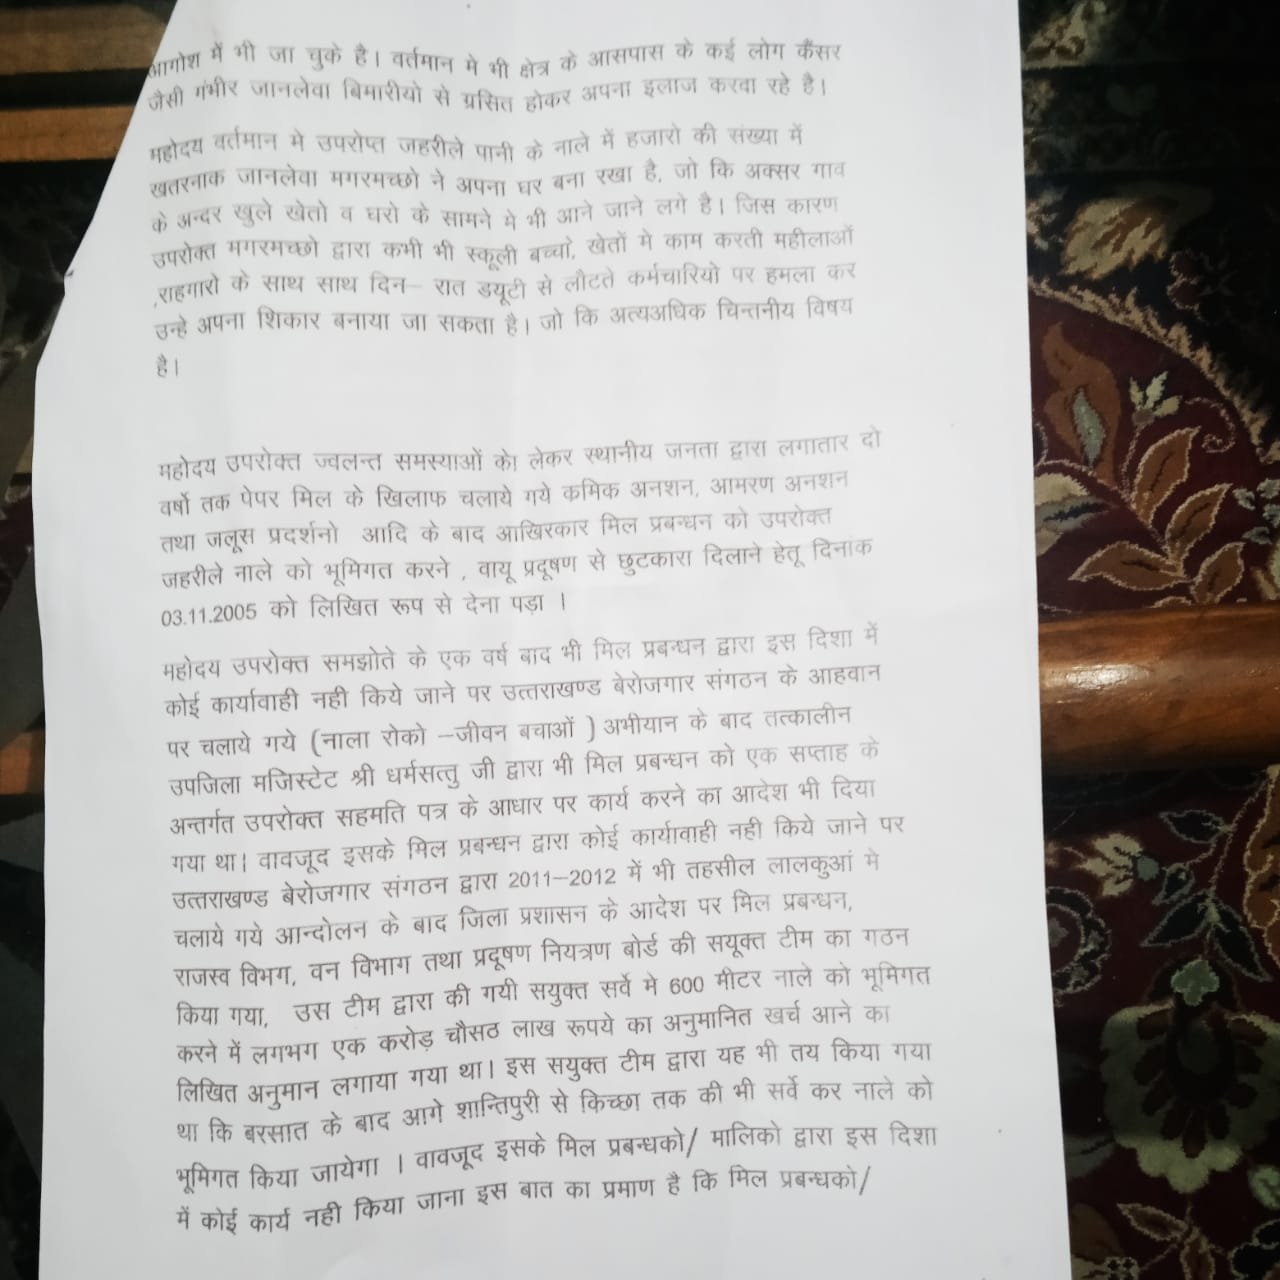 आगोश में भी जा चुके है। वर्तमान मे भी क्षेत्र के आसपास के कई लोग कैंसर
जैसी गंभीर जानलेवा बिमारीयो से ग्रसित होकर अपना इलाज करवा रहे है।
महोदय वर्तमान मे उपरोप्त जहरीले पानी के नाले में हजारो की संख्या में
खतरनाक जानलेवा मगरमच्छो ने अपना घर बना रखा है, जो कि अक्सर गाव
के अन्दर खुले खेतो व घरो के सामने मे भी आने जाने लगे है। जिस कारण
उपरोक्त मगरमच्छो द्वारा कभी भी स्कूली बच्चों, खेतों मे काम करती महीलाओं
,राहगारो के साथ साथ दिन– रात डयूटी से लौटते कर्मचारियो पर हमला कर
उन्हे अपना शिकार बनाया जा सकता है। जो कि अत्यअधिक चिन्तनीय विषय
है।
महोदय उपरोक्त ज्वलन्त समस्याओं को लेकर स्थानीय जनता द्वारा लगातार दो
वर्षो तक पेपर मिल के खिलाफ चलाये गये कमिक अनशन, आमरण अनशन
तथा जलूस प्रदर्शनो आदि के बाद आखिरकार मिल प्रबन्धन को उपरोक्त
जहरीले नाले को भूमिगत करने , वायू प्रदूषण से छुटकारा दिलाने हेतू दिनांक
03.11.2005 को लिखित रूप से देना पड़ा ।
महोदय उपरोक्त समझोते के एक वर्ष बाद भी मिल प्रबन्धन द्वारा इस दिशा में
कोई कार्यावाही नही किये जाने पर उत्तराखण्ड बेरोजगार संगठन के आहवान
पर चलाये गये (नाला रोको –जीवन बचाओं ) अभीयान के बाद तत्कालीन
उपजिला मजिस्टेट श्री धर्मसत्तु जी द्वारा भी मिल प्रबन्धन को एक सप्ताह के
अन्तर्गत उपरोक्त सहमति पत्र के आधार पर कार्य करने का आदेश भी दिया
गया था। वावजूद इसके मिल प्रबन्धन द्वारा कोई कार्यावाही नही किये जाने पर
उत्तराखण्ड बेरोजगार संगठन द्वारा 2011–2012 में भी तहसील लालकुआं मे
चलाये गये आन्दोलन के बाद जिला प्रशासन के आदेश पर मिल प्रबन्धन,
राजस्व विभग, वन विभाग तथा प्रदूषण नियत्रण बोर्ड की सयूक्त टीम का गठन
किया गया, उस टीम द्वारा की गयी सयुक्त सर्वे मे 600 मीटर नाले को भूमिगत
करने में लगभग एक करोड़ चौसठ लाख रूपये का अनुमानित खर्च आने का
लिखित अनुमान लगाया गया था। इस सयुक्त टीम द्वारा यह भी तय किया गया
था कि बरसात के बाद आगे शान्तिपुरी से किच्छा तक की भी सर्वे कर नाले को
भूमिगत किया जायेगा । वावजूद इसके मिल प्रबन्धको/ मालिको द्वारा इस दिशा
में कोई कार्य नही किया जाना इस बात का प्रमाण है कि मिल प्रबन्धको/